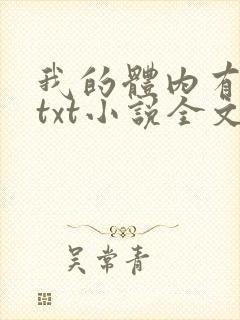 我的體內有
txt小說全文
吴常青